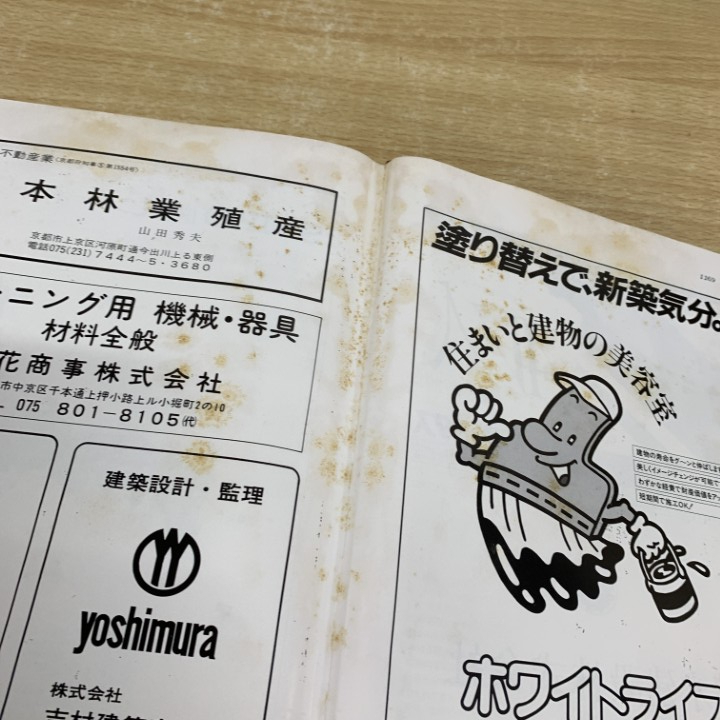 不動産業(京都府知事⑤第1554号)
本林業殖産
山田秀夫
京都市上京区河原町通今出川上る東側
電話075(231)7444〜5・3680
ーニング用 機械・器具
材料全般
花商事株式会社
市中京区千本通上押小路上ル小堀町2の10
075 801-8105㈹
建築設計・監理
yoshimura
株式会社
吉村建築
1369
塗り替えで、新築気分
住まいと建物の美容室
建物の寿命をグーンと伸ばしま
美しくイメージチェンジが可能で
わずかな経費で財産価値をアッ
短期間で施工OK!
ホワイトライフ